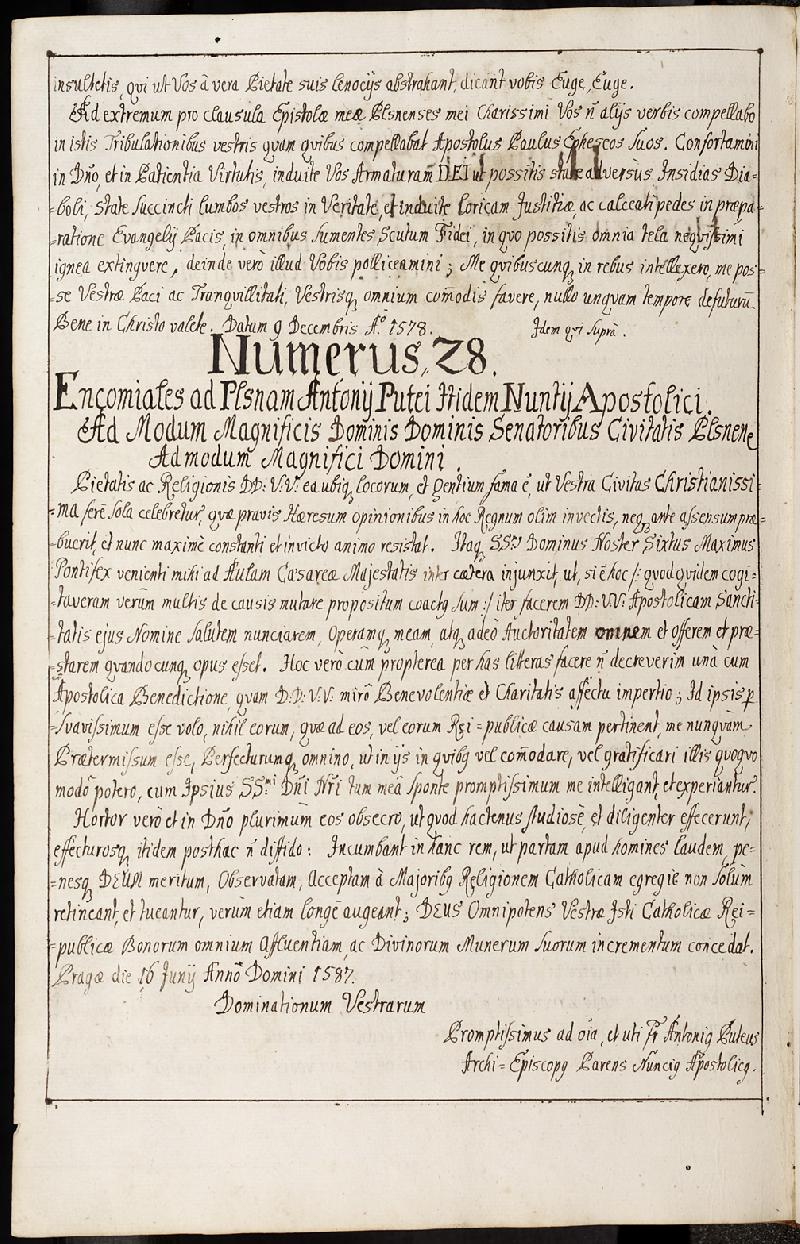 insultetis, qvi ut Vos à vera Pietate suis lenocijs abstrahant, dicant vobis Euge, Euge.
Ad extremum pro clausula Epistolæ meæ Plsnenses mei Charissimi Vos n̄ alijs verbis compellabo
in istis Tribulationibus vestris quam qvibus compellabat Apostolus Paulus Ephesios suos. Confortamini
in Dn̄o, et in Patientia Virtutis, induite Vos Armaturam DEI ut possitis stare adversus Insidias Dia-
-boli, state succincti lumbos vestros in Veritate, et induite loricam Justitiæ, ac calceati pedes in præpa-
-ratione Evangelij Pacis, in omnibus sumentes Scutum Fidei, in qvo possitis omnia tela neqvissimi
ignea extingvere, deinde vero illud Vobis polliceamini; Me qvibuscunq, in rebus intellexero, me pos-
-se Vestræ Paci ac Tranqvillitati, Vestrisq, omnium com̄odis favere, nullo unqvam tempore defuturū.
Bene in Christo valete. Datum 9 Decembris Aō 1578. Idem qvi Supra.
Numerus, 28.
Encomiales ad Plsnam Antonij Putei Itidem Nuntij Apostolici.
Ad Modum Magnificis Dominis Dominis Senatoribus Civitatis Plsnenẽ
Admodum Magnifici Domini.
Pietatis ac Religionis DD: VV. ea ubiq, locorum, et gentium fama ē, ut Vestra Civitas Christianissi-
-ma ferè sola celebretur, qvæ pravis Hæresum opinionibus in hoc Regnum olim invectis, neq, ante assensum præ-
-buerit, et nunc maximè constanti et invicto animo resistat. Itaq, SSmus Dominus Noster Sixtus Maximus
Pontifex venienti mihi ad Aulam Cæsareæ Majestatis inter cætera injunxit, ut, si ē hoc /: qvod qvidem cogi-
-taveram verùm multis de causis mutare propositum coactq sum :/ iter facerem DD: VV: Apostolicam Sancti-
-tatis ejus Nomine salutem nunciarem, Operamq, meam, atq, adeò Auctoritatem omnem et offerem et præ-
-starem qvandocunq, opus esset. Hoc verò cum propterea per has litteras facere n̄ decreverim unà cum
Apostolica Benedictione, qvam D.D: V.V. mirō Benevolentiæ et Charitatis affectu impertio; Id ipsis p
-svavissimum esse volo, nihil eorum, qvæ ad eos, vel eorum Rei-publicæ causam pertinent, me nunqvam
Prætermissum esse, Perfecturumq, omnino, ut in ijs in qvibq vel com̄odare, vel gratificari illis qvoqvo
modō potero, cum Ipsius SSmi Dn̄i Nr̄i tum meâ sponte promptissimum me intelligant, et experiantur.
Hortor verò et in Dn̄o plurimùm eos obsecro, ut qvod hactenus studiosè, et diligenter effecerunt,
effecturosq, itidem posthac n̄ diffido: Incumbant in hanc rem, ut partam apud homines laudem, pe-
-nesq, DEUM meritum, Observatam, Acceptam à Majoribq Religionem Catholicam egregie non solùm
retineant, et tueantur, verùm etiam longè augeant; DEUS Omnipotens Vestræ Isti Catholicæ Rei-
-publicæ Bonorum omnium Affluentiam, ac Divinorum Munerum suorum incrementum concedat.
Pragæ die 16 Junij Annō Domini 1587.
Dominationum Vestrarum
Promptissimus ad oīa, et uti Fr Antoniq Puteus
Archi-Episcopq Barens Nunciq Apostolicq.